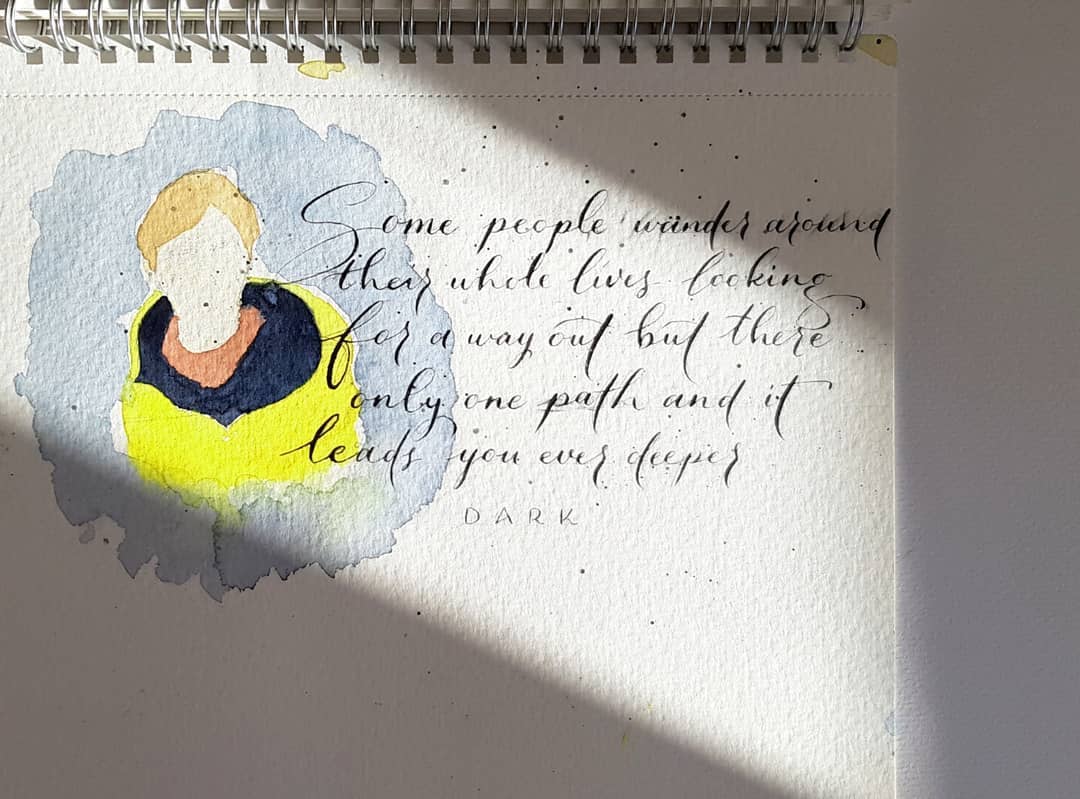 Some people wander around
their whole lives looking
for a way out but there
only one path and it
leads you ever deeper
DARK